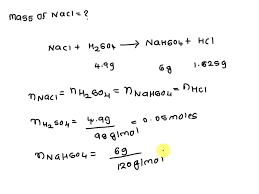 mass of NaCl = ?
NaCl + H₂SO₄ ⟶ NaHSO₄ + HCl
4.9g 6g 1.825g
nNaCl = nH₂SO₄ = nNaHSO₄ = nHCl
nH₂SO₄ = 4.9g / 98g/mol = 0.05moles
nNaHSO₄ = 6g / 120g/mol